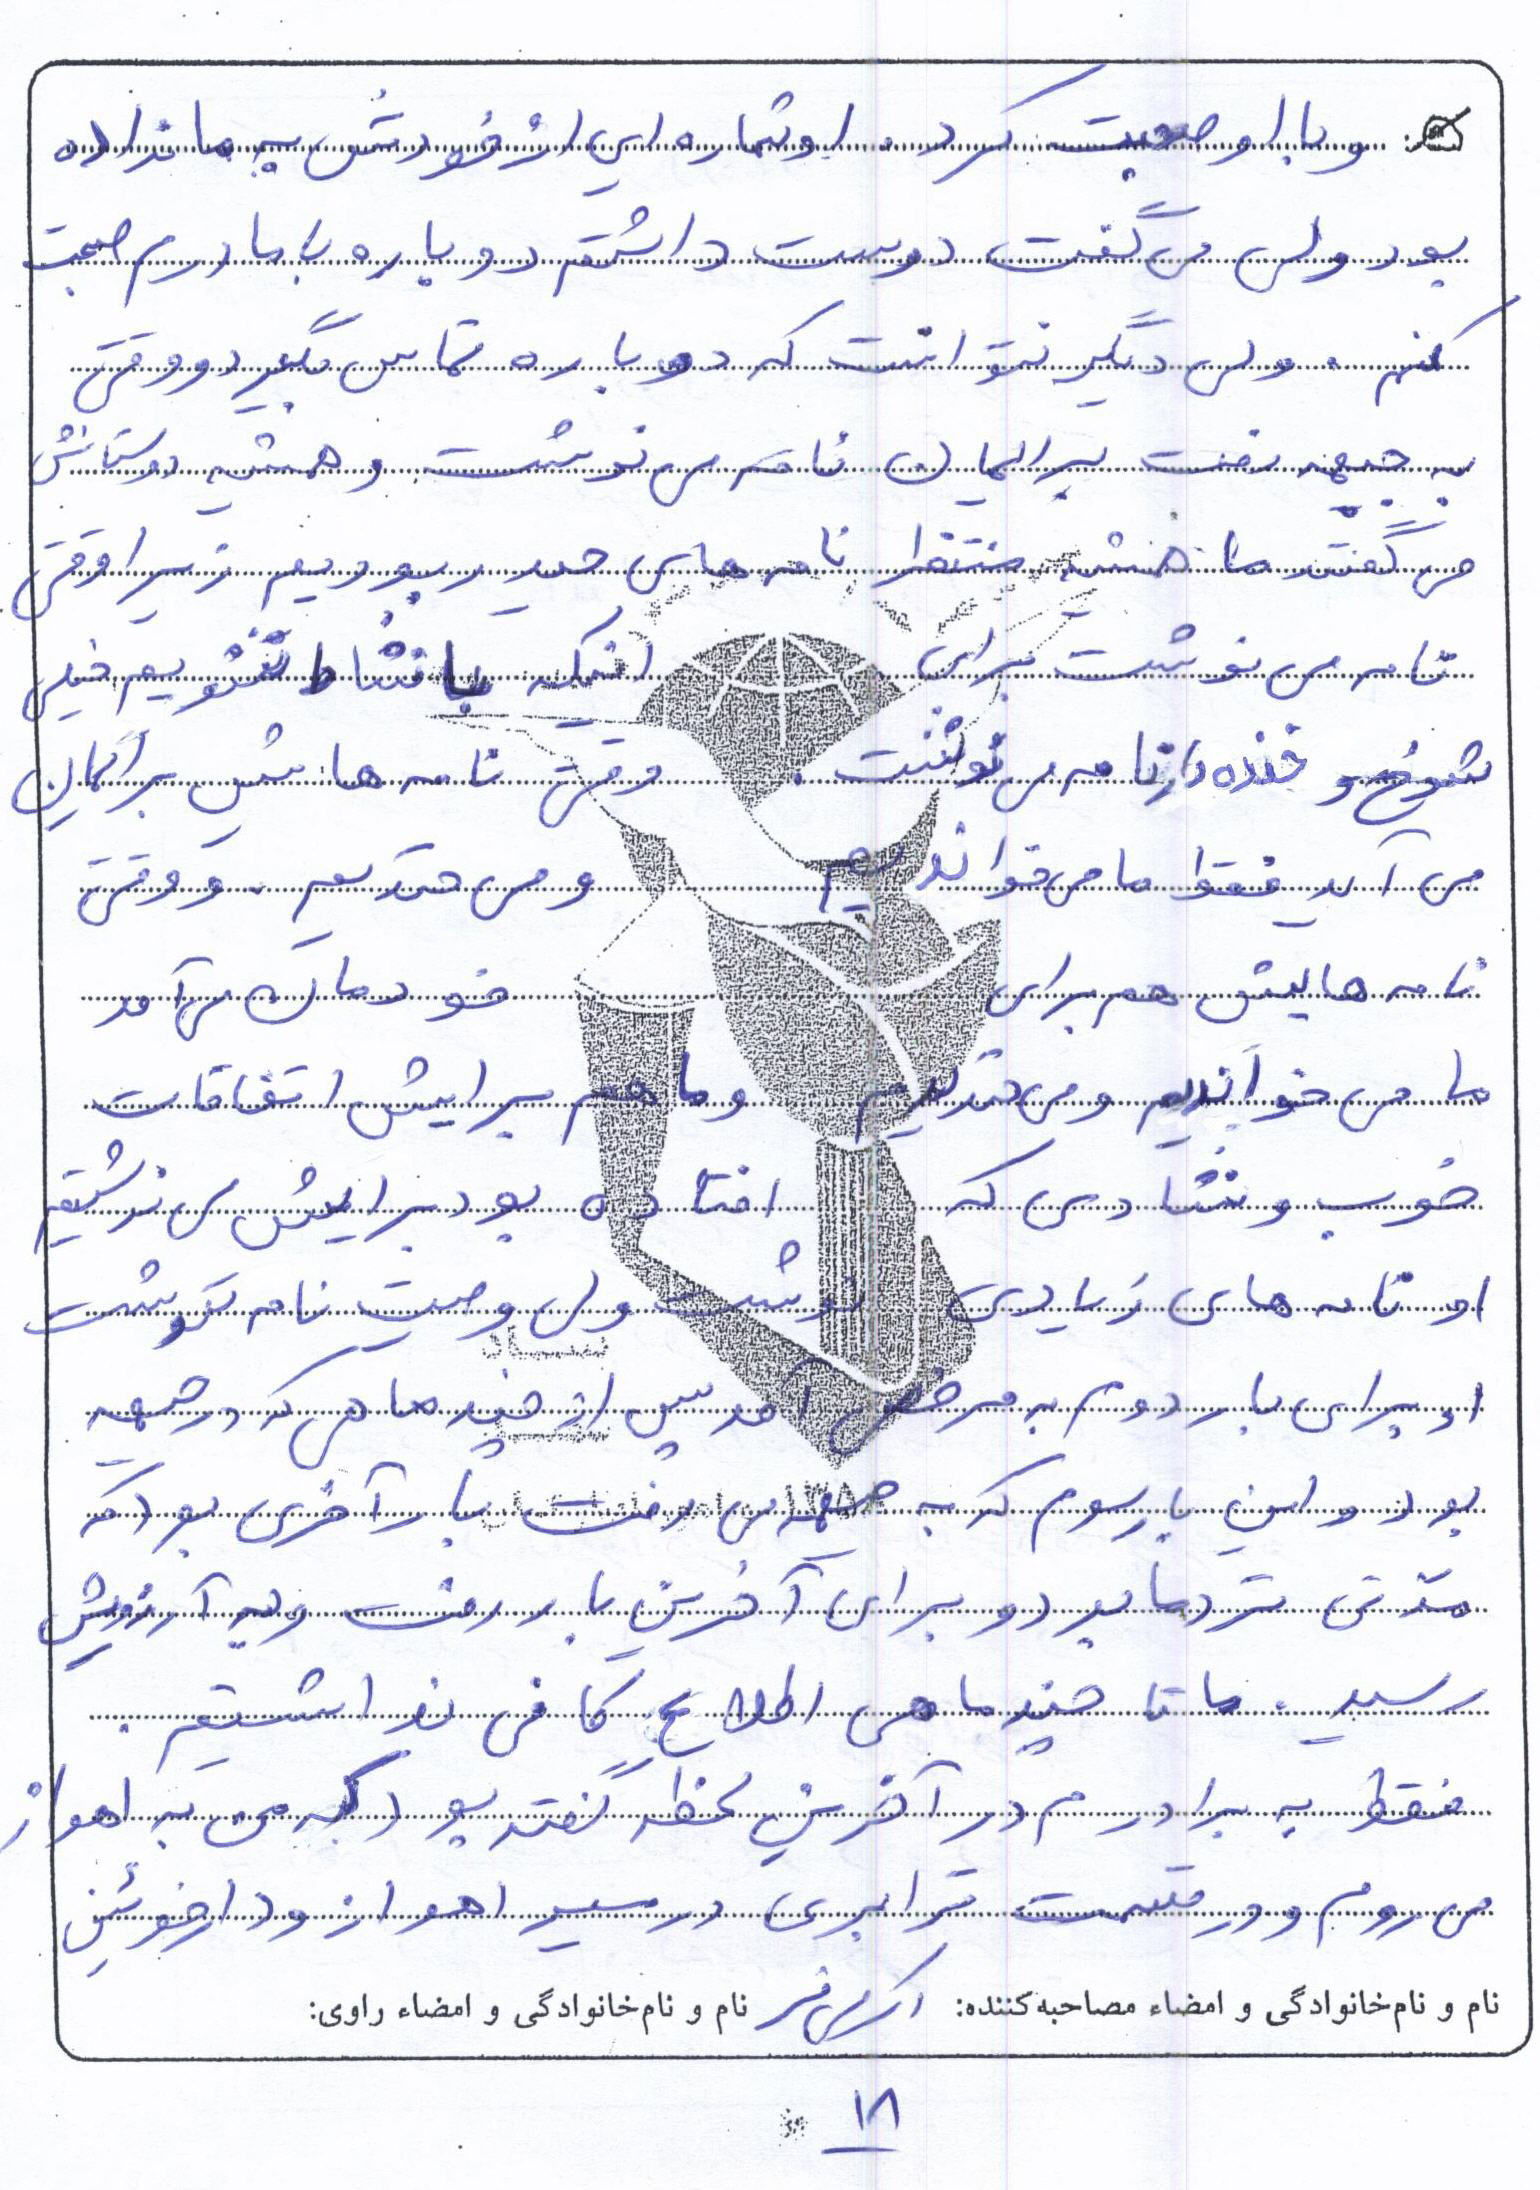 و با او صحبت کرد. او شماره ای از خودش به ما نداده
بود ولی می گفت دوست داشتم دوباره با مادرم صحبت
کنم. ولی دیگر نتوانست که دوباره تماس بگیرد و وقتی
به جبهه رفت برایمان نامه می نوشت و همیشه دوستانش
می گفتند ما همیشه منتظر نامه های حیدر بودیم زیرا وقتی
نامه می نوشت برای اینکه با نشاط تشویم خیلی
شوخ و خنده دار نامه می نوشت. وقتی نامه هایش برایمان
می آمد فقط ما می خواندیم و می خندیدیم. و وقتی
نامه هایش هم برای خودمان می آمد
ما می خواندیم و می خندیدیم و ما هم برایش اتفاقات
خوب و شادی که افتاده بود برایش می نوشتیم
او نامه های زیادی نوشت ولی وصیت نامه ننوشت
او برای بار دوم به مرخصی آمد پس از چند ماهی که در جبهه
بود و این بار سوم که به جبهه می رفت بار آخری بود که
مدتی نزد ما بود و برای آخرین بار رفت و به آرزویش
رسید. ما تا چند ماهی اطلاع کافی نداشتیم.
فقط به برادرم در آخرین لحظه گفته بود که من به اهواز
می روم و در قسمت ترابری در مسیر اهواز و دارخوئین
نام و نام خانوادگی و امضاء مصاحبه کننده: نام و نام خانوادگی و امضاء راوی:
۱۸